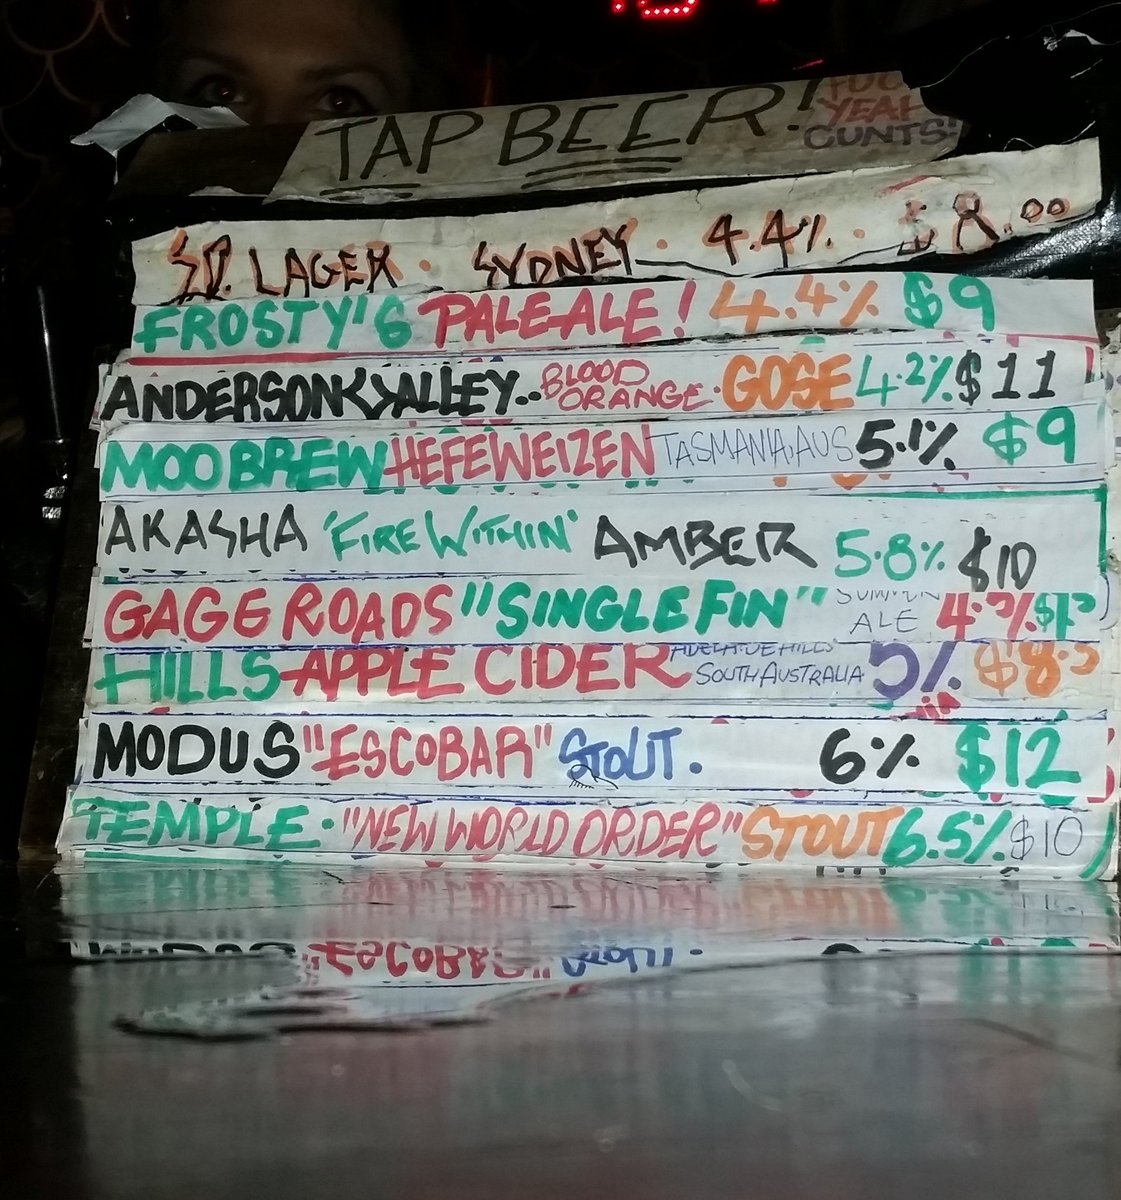 TAP BEER!
YEAH
CUNTS!
LAGER. SYDNEY. 4.4%. $8.00
FROSTY'S PALE ALE! 4.4% $9
ANDERSON VALLEY.. BLOOD ORANGE. GOSE 4.2% $11
MOO BREW HEFEWEIZEN TASMANIA, AUS 5.1% $9
AKASHA 'FIRE WITHIN' AMBER 5.8% $10
GAGE ROADS "SINGLE FIN" SUMMER ALE
HILLS APPLE CIDER ADELAIDE HILLS SOUTH AUSTRALIA 5% $8.5
MODUS "ESCOBAR" STOUT. 6% $12
TEMPLE. "NEW WORLD ORDER" STOUT 6.5% $10